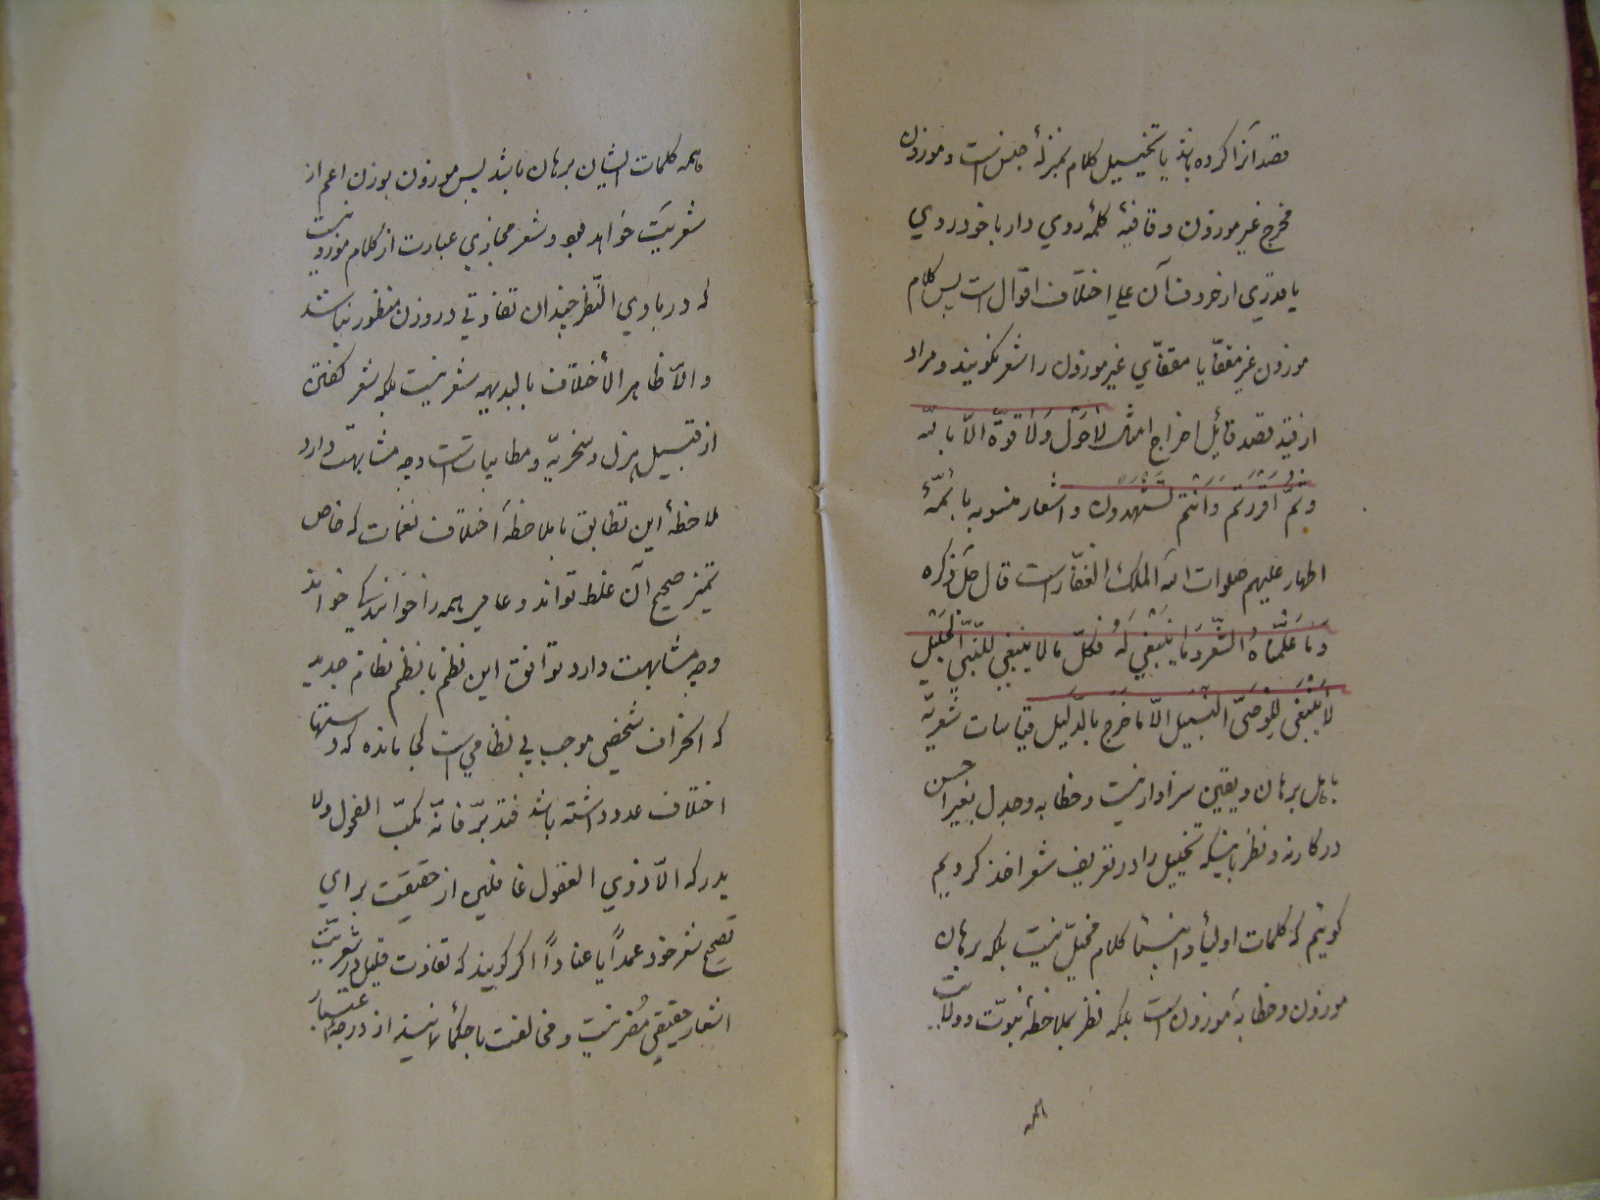 قصد آنرا کرده باشد یا تخییل کلام بمنزلهٔ جنس است و موزون
مخرج غیر موزون و قافیهٔ کلمهٔ روي دار با خود روي
یا قدري از حروف آن علي اختلاف اقوال است پس کلام
موزون غیر مقفّا یا مقفّاي غیر موزون را شعر نکویند و مراد
از قید قصد قائل اخراج امثال لَاحَوْلَ وَلَا قُوَّةَ الّا باللّه
وثمّ اَقْرَرْتُم وَاَنْتُم تَشْهَدُون و اشعار منسوبه بائمّهٔ
اطهار علیهم صلوات اللّه الملک الغفّار است قال جلّ ذکره
وَمَا عَلَّمْنَاهُ الشِّعْرَ وَمَا يَنْبَغِي لَهُ فکلّ ما لا ینبغي للنّبيّ الجَلیل
لا یَنْبَغي لِلْوَصيّ النّبیل الّا ما خَرَج بالدّلیل قیاسات شعریّه
باهل برهان و یقین سزاوار نیست و خطابه وجدل بغیر احسن
در کار نه و نظر باینکه تخییل را در تعریف شعر اخذ کردیم
کوئیم که کلمات اولیأ و انبیأ کلام مخیّل نیست بلکه برهان
موزون و خطابهٔ موزون است بلکه نظر بملاحظهٔ نبوّت و ولایت
همه
همه کلمات ایشان برهان باشد پس موزون بوزن اعم از
شعریّت خواهد بود و شعر مجازي عبارت از کلام موزونیست
که در بادي النّظر چندان تفاوتي در وزن منظور نباشد
و الّا ظاهر الأختلاف بالبدیهه شعر نیست بلکه شعر کفتن
از قبیل هزل و سخریّه و مطایبات است وجه مشابهت دارد
ملاحظهٔ این تطابق با ملاحظهٔ اختلاف نغمات که خاص
تمیز صحیح آن غلط تواند و عامي همه را خوانندکي خواند
وجه مشابهت دارد توافق این نظم با نظم نظام جدید
که انحراف شخصي موجب بي نظامي است کجا مانده که دستها
اختلاف عدد داشته باشد فتدبّر فانّه نکتب الفحول ولا
یدرکه الّا ذوي العقول غافلین از حقیقت براي
تصحیح شعر خود عمداً یا عناداً اکر کویند که تفاوت قلیل در شعریّت
اشعار حقیقي مُضر نیست و مخالفت با حکمأ لا نیز از درجهٔ اعتبار